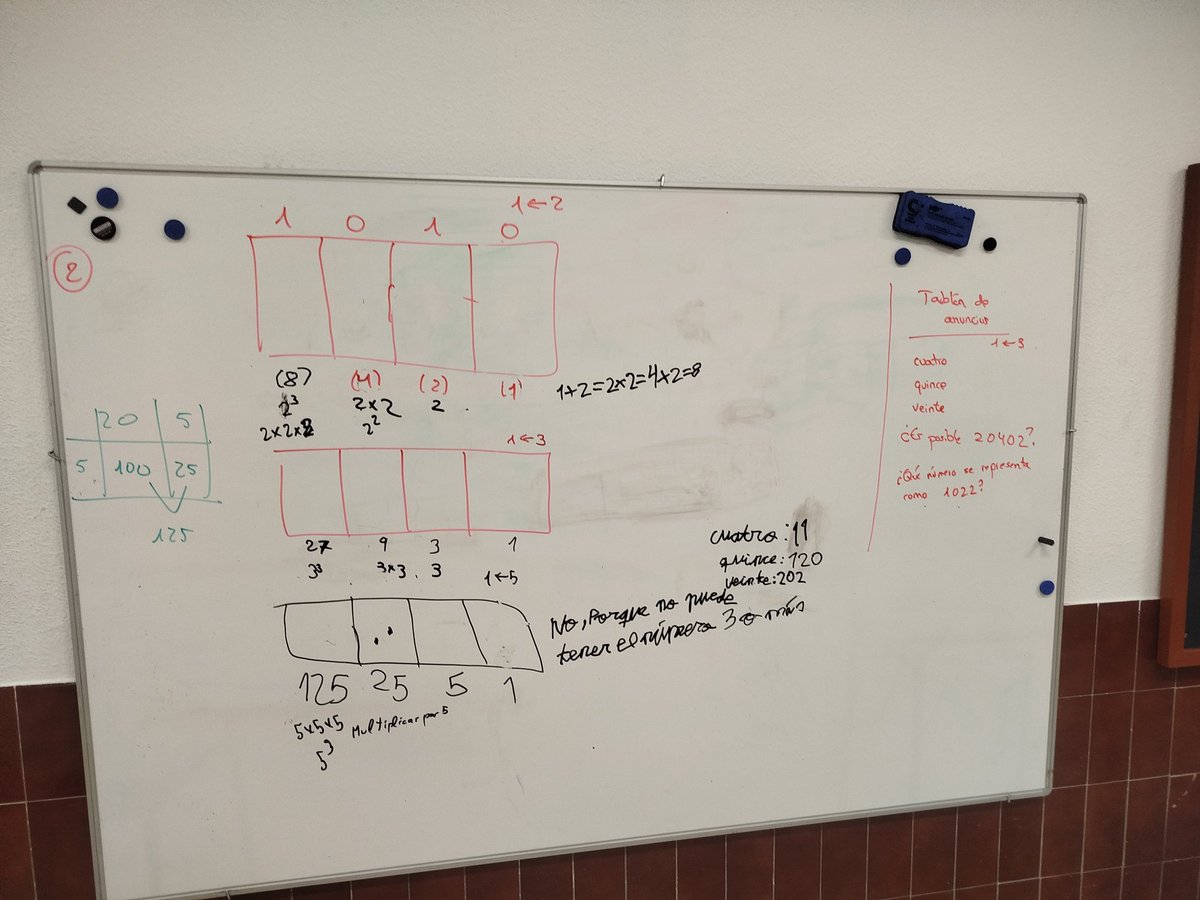 2
1←2
1 0 1 0
(8) (4) (2) (1)
2³ 2×2 2
2×2×2 2²
1×2=2×2=4×2=8
20 5
5 100 25
125
1←3
27 9 3 1
3³ 3×3 3
1←5
125 25 5 1
5×5×5 Multiplicar por 5
5³
cuatro: 11
quince: 120
veinte: 202
No, Porque no puede
tener el número 3 o más
Tablón de
anuncios
1←3
cuatro
quince
veinte
¿Es posible 20402?
¿Qué número se representa
como 1022?